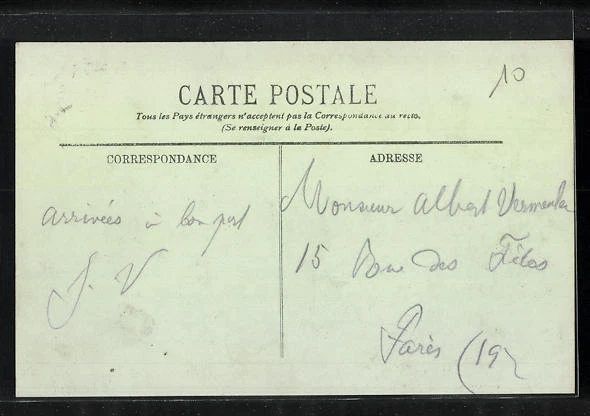 10
CARTE POSTALE
Tous les Pays étrangers n'acceptent pas la Correspondance au recto.
(Se renseigner à la Poste).
CORRESPONDANCE
arrivées à bon port
J. V
ADRESSE
Monsieur Albert Vermeulen
15 Rue des Fêtes
Paris (19